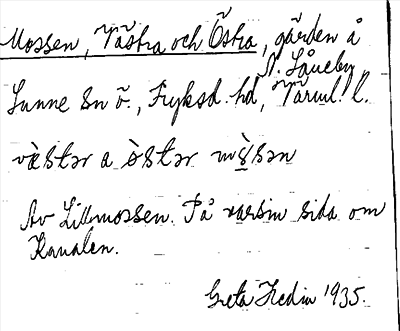 Mossen, Västra och Östra, gården å
N. Låneby
Sunne sn ö., Fryksd. hd, Värml. l.
vàstər a òstər mòsən
Av Lillmossen. På varsin sida om
Kanalen.
Greta Hedin 1935.